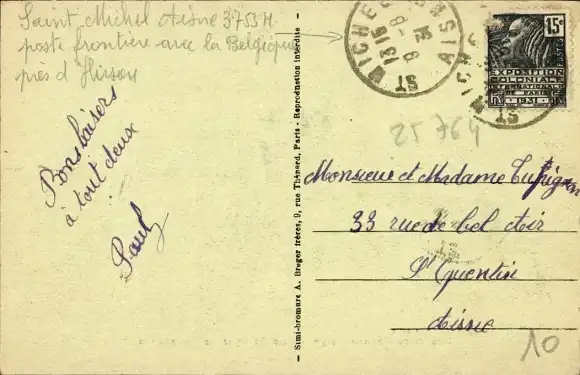 Saint Michel Aisne 3753 H
poste frontière avec la Belgique
près d'Hirson
Bons baisers
à tout deux
Paul
Simi-bromure A. Breger frères, 9, rue Thénard, Paris - Reproduction interdite
ST MICHEL AISNE
1315
8-8
15c
POSTES
EXPOSITION
COLONIALE
INTERNATIONALE
DE PARIS
1931
25764
Monsieur et Madame
33 rue de bel Air
St Quentin
Aisne
10